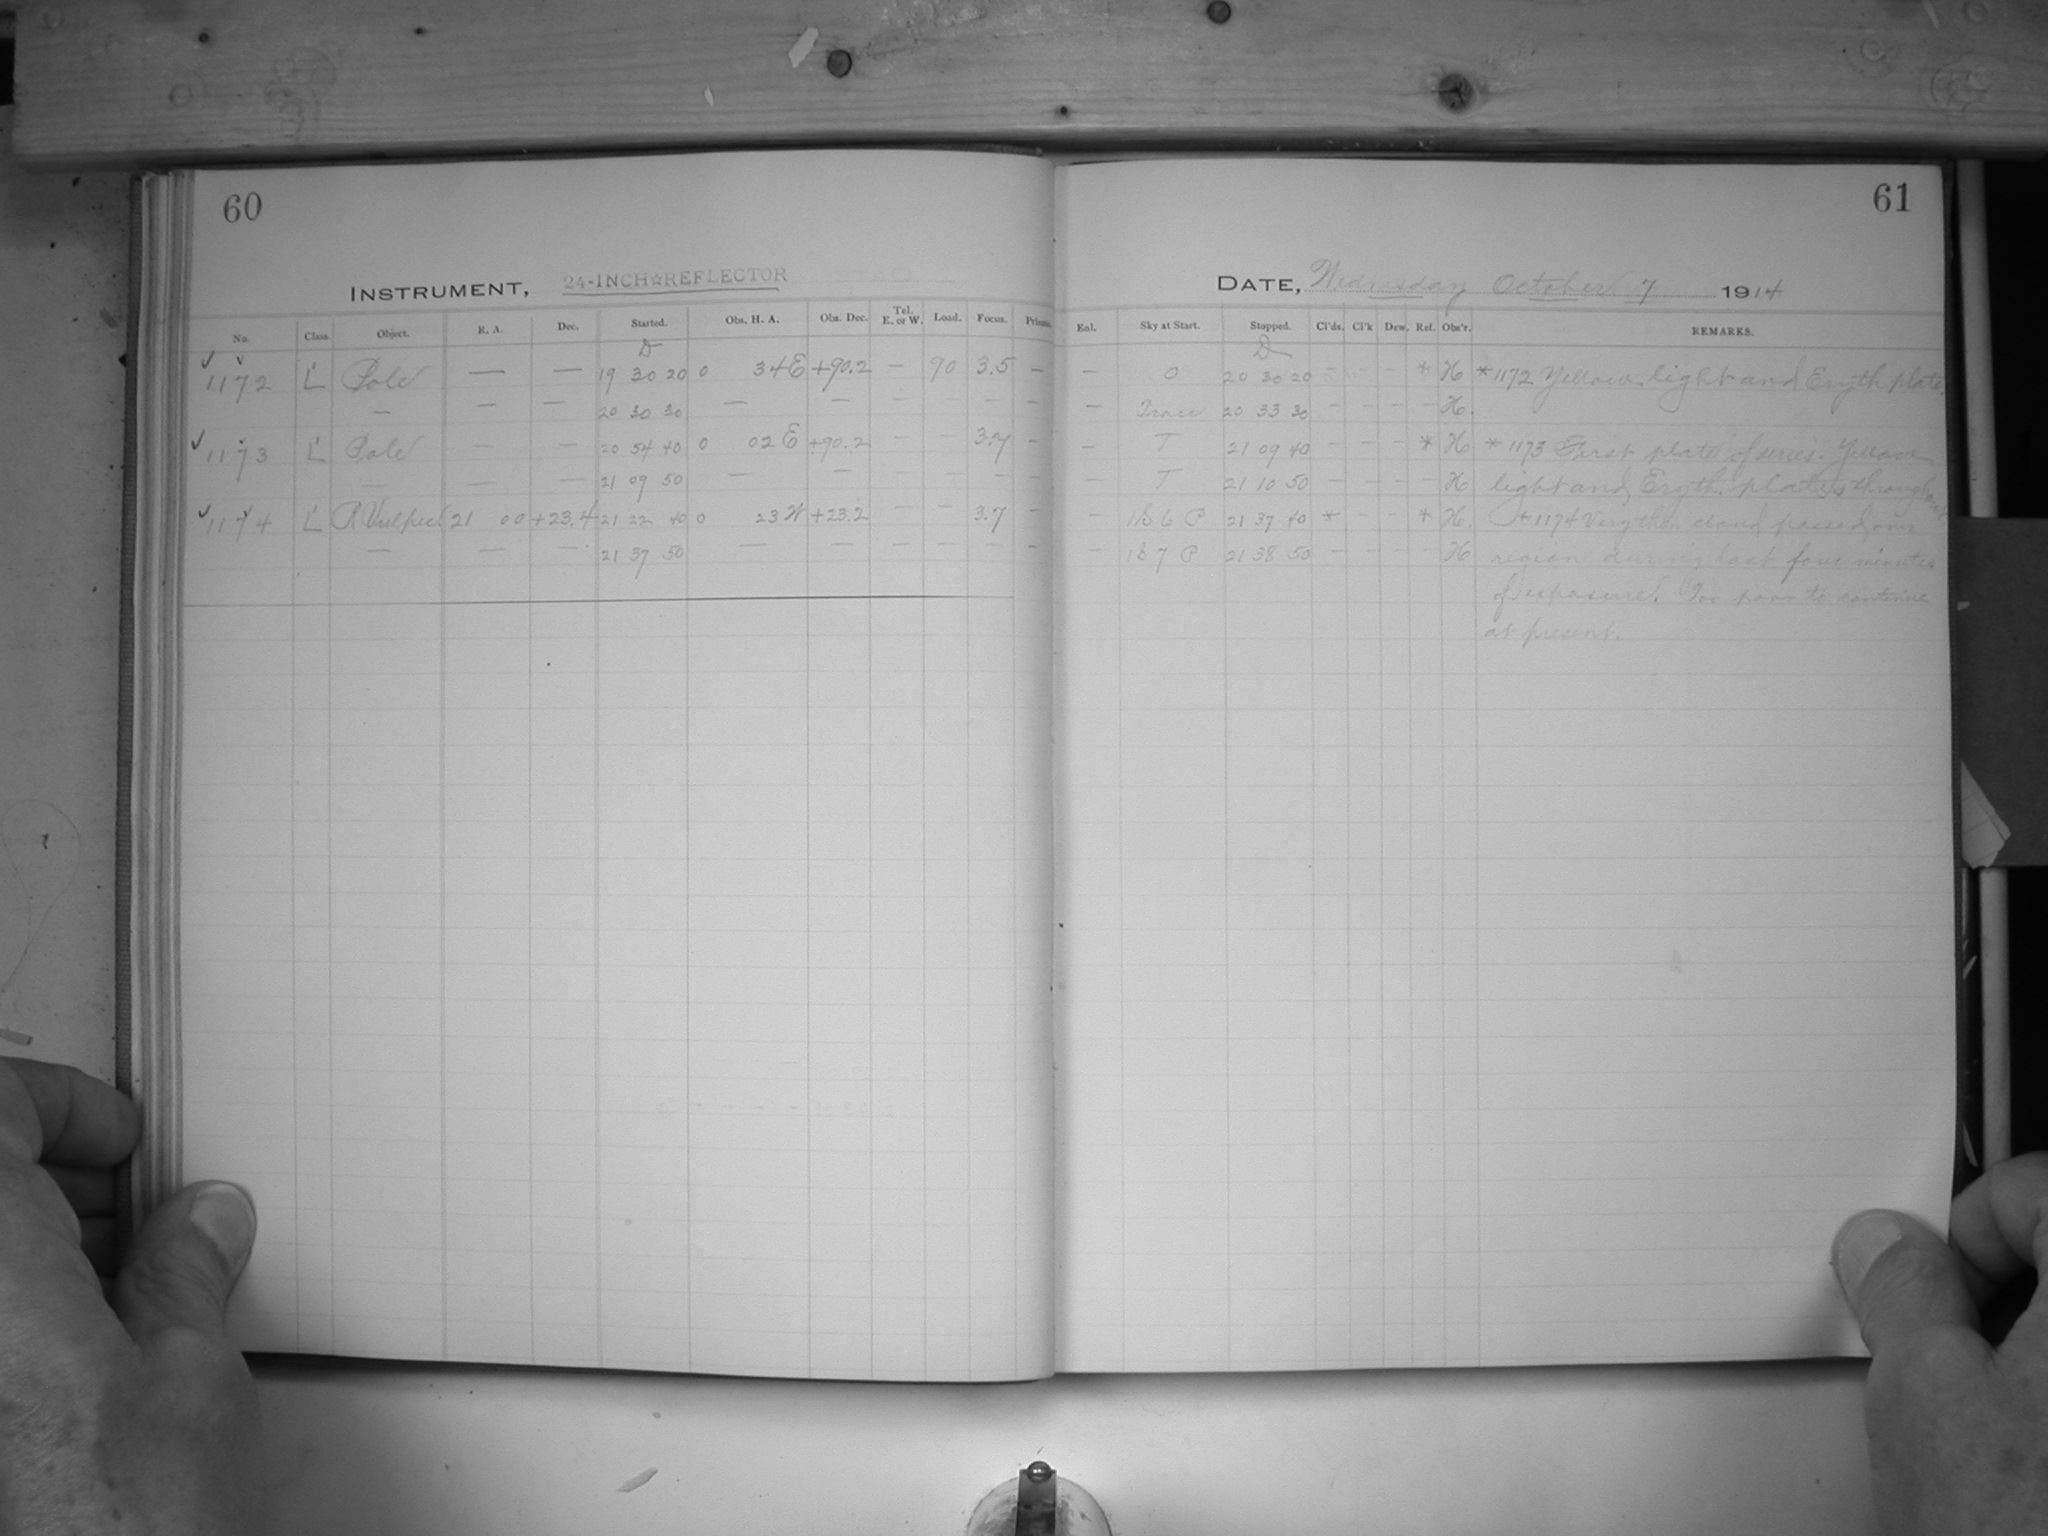 60
INSTRUMENT, 24-INCH☆REFLECTOR
No. Class. Object. R. A. Dec. Started. Obs. H. A. Obs. Dec. Tel. E. or W. Load. Focus. Prisms.
D
1172 L Pole — — 19 30 20 0 34 E +90.2 — 90 3.5 —
— — — 20 30 30 — — — — — —
1173 L Pole — — 20 54 40 0 02 E +90.2 — — 3.7 —
— — — 21 09 50 — — — — — —
1174 L R Vulpec 21 00 +23.4 21 22 40 0 23 W +23.2 — — 3.7 —
— — — 21 37 50 — — — — — —
61
DATE, Wednesday October 7 1914
Enl. Sky at Start. Stopped. Cl'ds. Cl'k Dew. Ref. Obs'r. REMARKS.
D
— 0 20 30 20 - - - * H *1172 Yellow light and Eryth plate.
— Trace 20 33 30 - - - - H.
— T 21 09 40 - - - * H *1173 First plate of series. Yellow
— T 21 10 50 - - - - H light and Eryth. plates throughout
— 1 S 6 P 21 37 40 * - - * H. *1174 Very thin cloud passed over
— 1 S 7 P 21 38 50 - - - - H region during last four minutes
of exposure. Too poor to continue
at present.